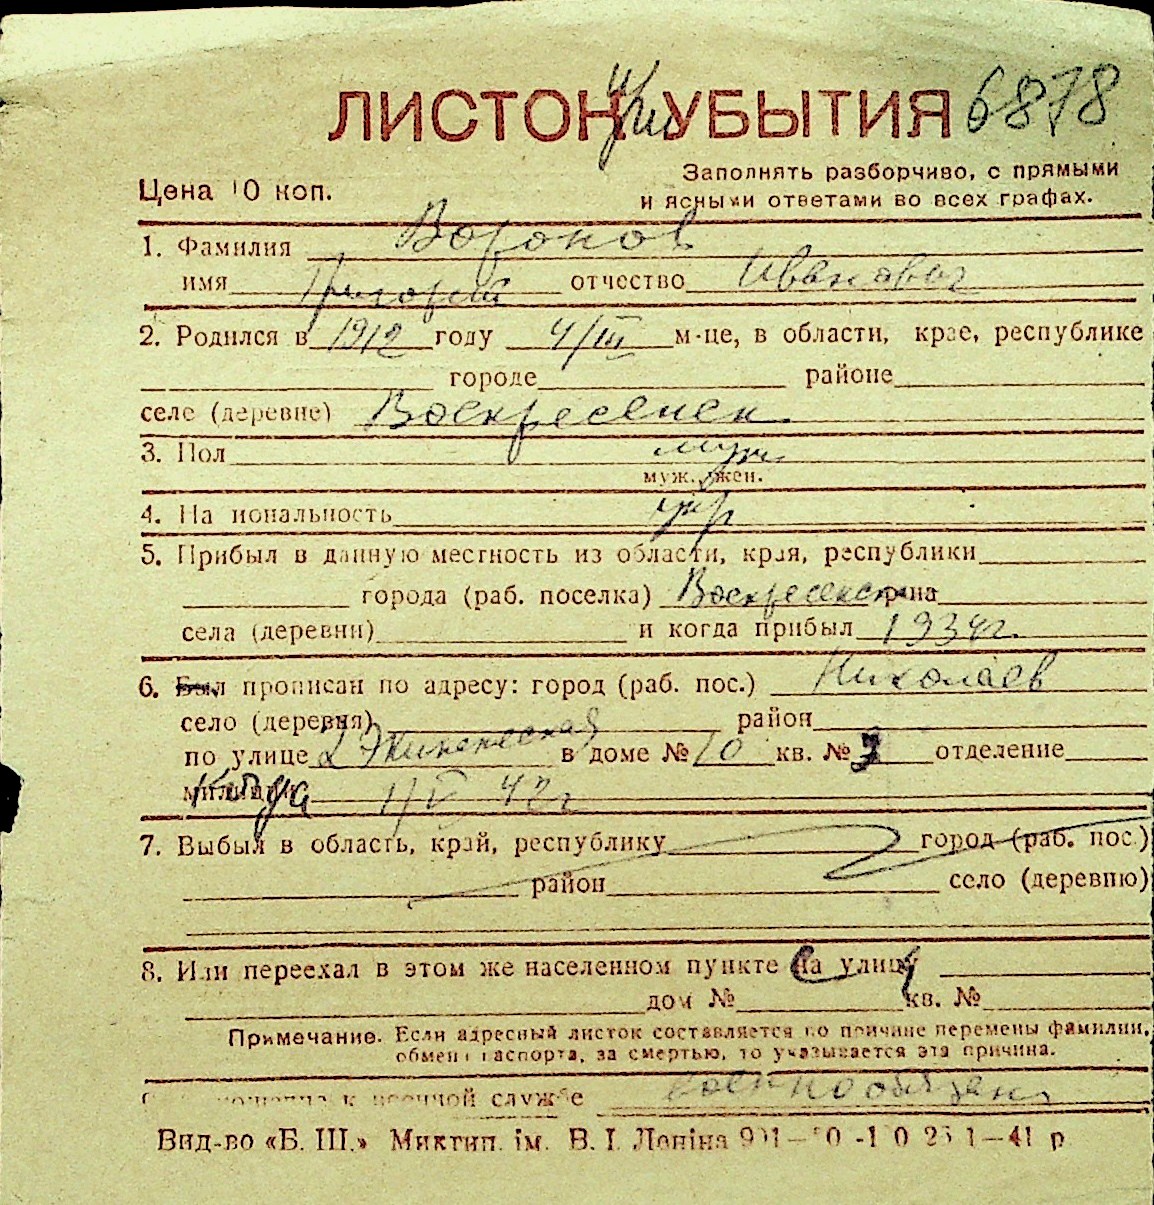 ЛИСТОК УБЫТИЯ 6878
Заполнять разборчиво, с прямыми
Цена 10 коп. и ясными ответами во всех графах.
1. Фамилия Воронов
имя Григорий отчество Иванович
2. Родился в 1912 году 4/III м-це, в области, крае, республике
городе районе
селе (деревне) Воскресенск
3. Пол муж.
муж., жен.
4. Национальность укр
5. Прибыл в данную местность из области, края, республики
города (раб. поселка) Воскресенск р-на
села (деревни) и когда прибыл 1934г.
6. Был прописан по адресу: город (раб. пос.) Николаев
село (деревня) район
по улице в доме № 10 кв. № 3 отделение
милиции 42г
7. Выбыл в область, край, республику город (раб. пос.)
район село (деревню)
8. Или переехал в этом же населенном пункте на улицу
дом № кв. №
Примечание. Если адресный листок составляется по причине перемены фамилии,
обмена паспорта, за смертью, то указывается эта причина.
к военной службе военнообязан
Вид-во «Б. Ш.» Миктип. ім. В. І. Леніна 1—41 р